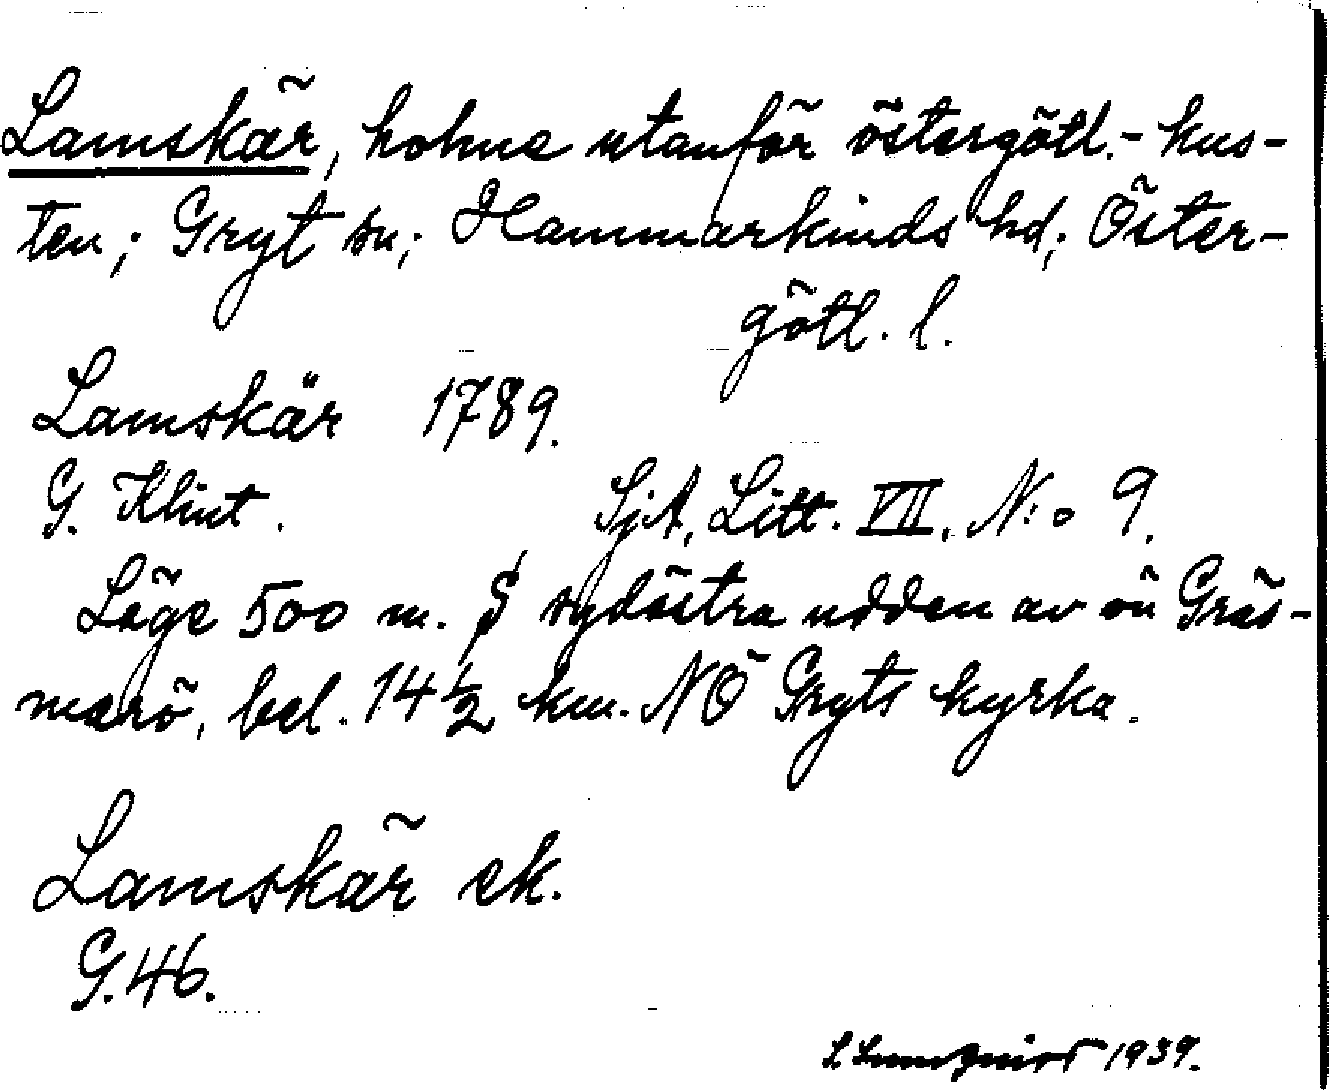 Lamskär, holme utanför östergötl.-kus-
ten; Gryt sn; Hammarkinds hd; Öster-
götl. l.
Lamskär 1789.
G. Klint. SjA, Litt. VII, N:o 9.
Läge 500 m. S sydöstra udden av ön Gräs-
marö, bel. 14 1/2 km. NÖ Gryts kyrka.
Lamskär ek.
G.46.
1939.